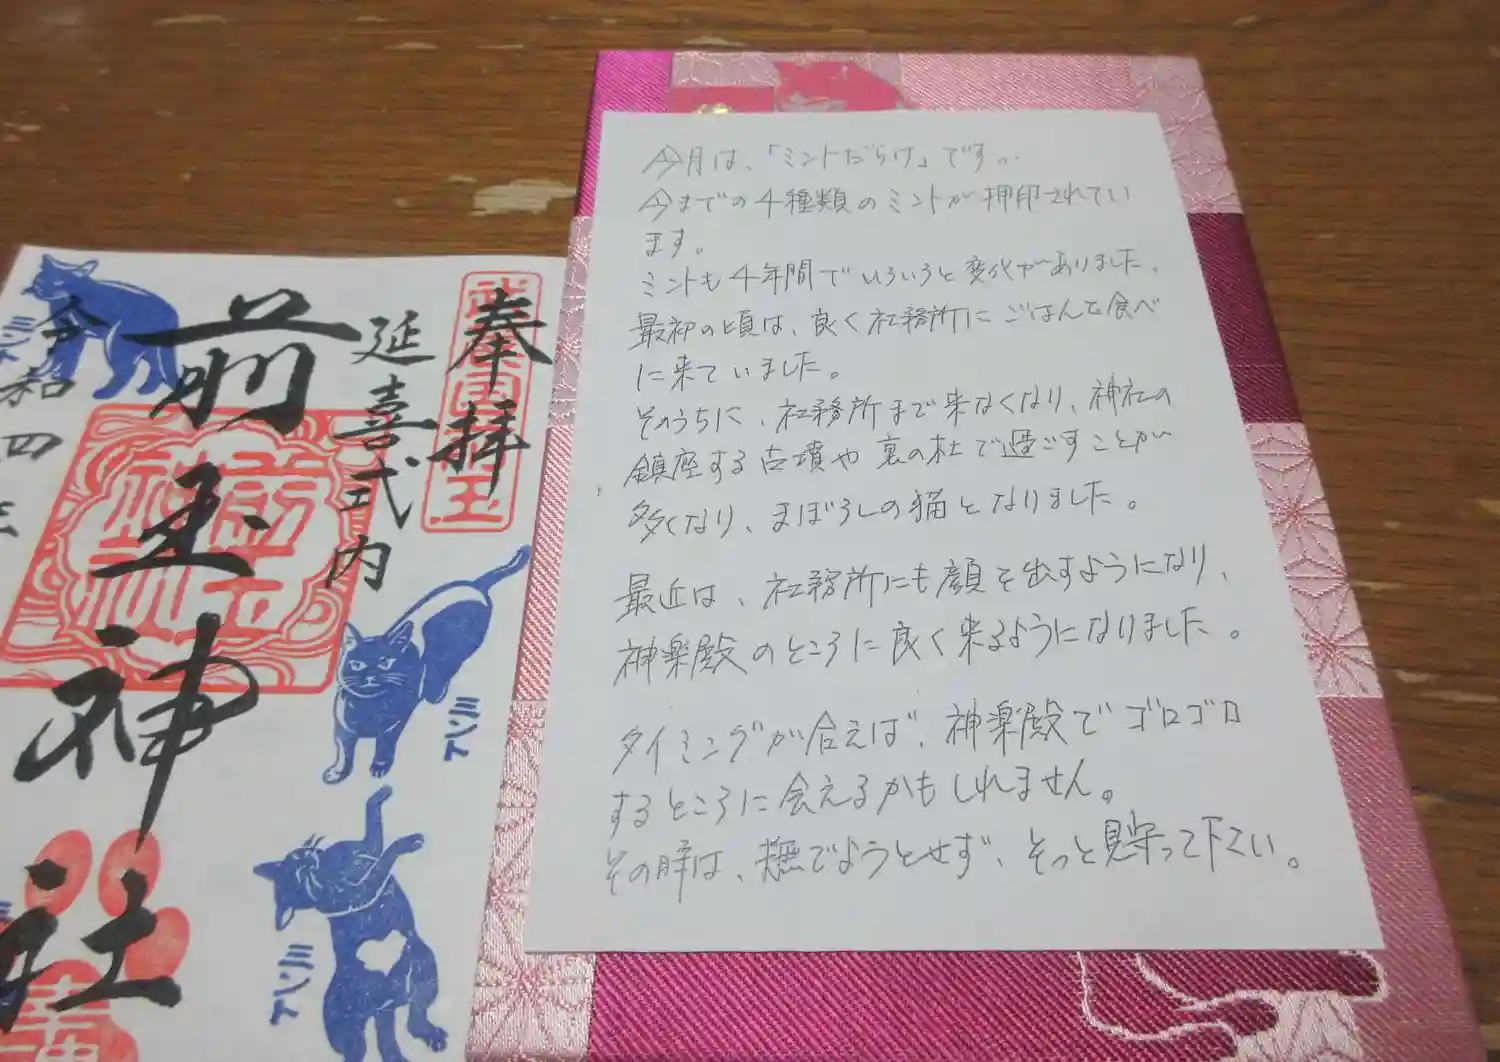 今月は、「ミントだらけ」です。
今までの4種類のミントが押印されてい
ます。
ミントも4年間でいろいろと変化がありました。
最初の頃は、良く社務所にごはんを食べ
に来ていました。
そのうちに、社務所まで来なくなり、神社の
鎮座する古墳や裏の杜で過ごすことが
多くなり、まぼろしの猫となりました。
最近は、社務所にも顔を出すようになり、
神楽殿のところに良く来るようになりました。
タイミングが合えば、神楽殿でゴロゴロ
するところに会えるかもしれません。
その時は、撫でようとせず、そっと見守って下さい。
奉拝
延喜式内
前玉神社
令和四
前玉神社
ミント
ミント
ミント